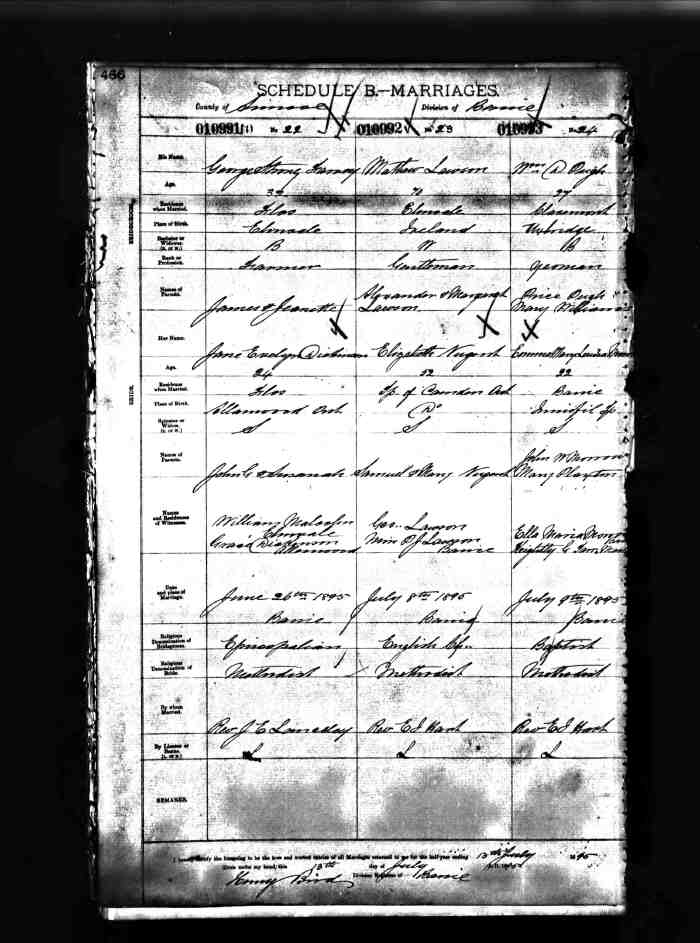 466
SCHEDULE B.—MARRIAGES.
County of Simcoe Division of Barrie
010991 (11) No 22 010992 No 23 010993 No 24
His Name. George Strong Mathew Lawson Wm. A Pugh
Age. 32 70 27
Residence when Married. Flos Elmvale Claremont
Place of Birth. Elmvale Ireland Uxbridge
Bachelor or Widower (B. or W.) B W B
Rank or Profession. Farmer Gentleman Yeoman
Names of Parents. James & Jeanette Alexander & Margaret Lawson Price Pugh Mary Williams
BRIDEGROOM.
Her Name. Jane Evelyn Dickinson Elizabeth Nugent Mary Louisa
Age. 24 52 22
Residence when Married. Flos Tp. of Camden Ont Barrie
Place of Birth. Ont Do Innisfil Tp
Spinster or Widow. (S. or W.) S S S
BRIDE.
Names of Parents. John G & Susanah Samuel & Mary Nugent John W Mary
Names and Residences of Witnesses. William Elmvale Dickinson Geo. Lawson Lawson Barrie Ella Maria
Date and place of Marriage. June 26th 1895 Barrie July 8th 1895 Barrie July 9th 1895 Barrie
Religious Denomination of Bridegroom. Episcopalian English Ch. Baptist
Religious Denomination of Bride. Methodist Methodist Methodist
By whom Married. Rev J E Rev E J Hart Rev E J Hart
By License or Banns. (L. or B.) L L L
REMARKS.
I hereby certify the foregoing to be the true and correct entries of all Marriages returned to me for the half-year ending 13th July 1895
Given under my hand, this 13th day of July A.D. 1895
Henry Bird Division Registrar of Barrie